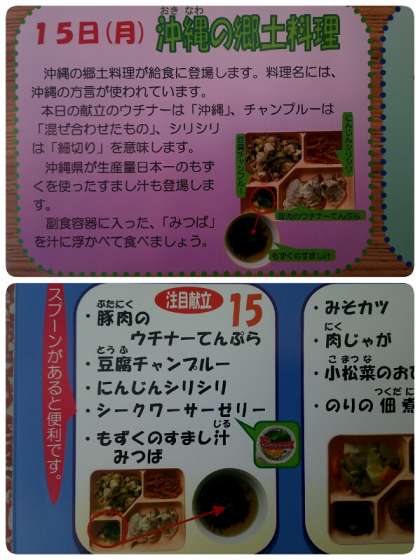 15日(月) 沖縄の郷土料理
おき なわ
沖縄の郷土料理が給食に登場します。料理名には、
沖縄の方言が使われています。
本日の献立のウチナーは「沖縄」、チャンプルーは
「混ぜ合わせたもの」、シリシリ
は「細切り」を意味します。
沖縄県が生産量日本一のもず
くを使ったすまし汁も登場しま
す。
副食容器に入った、「みつば」
を汁に浮かべて食べましょう。
豆腐チャンプルー
にんじんシリシリ
豚肉のウチナーてんぷら
もずくのすまし汁
スプーンがあると便利です。
注目献立
15
ぶたにく
・豚肉の
ウチナーてんぷら
とうふ
・豆腐チャンプルー
・にんじんシリシリ
・シークワーサーゼリー
じる
・もずくのすまし汁
みつば
・みそカツ
にく
・肉じゃが
こ まつ な
・小松菜のおひ
つくだ に
・のりの佃煮